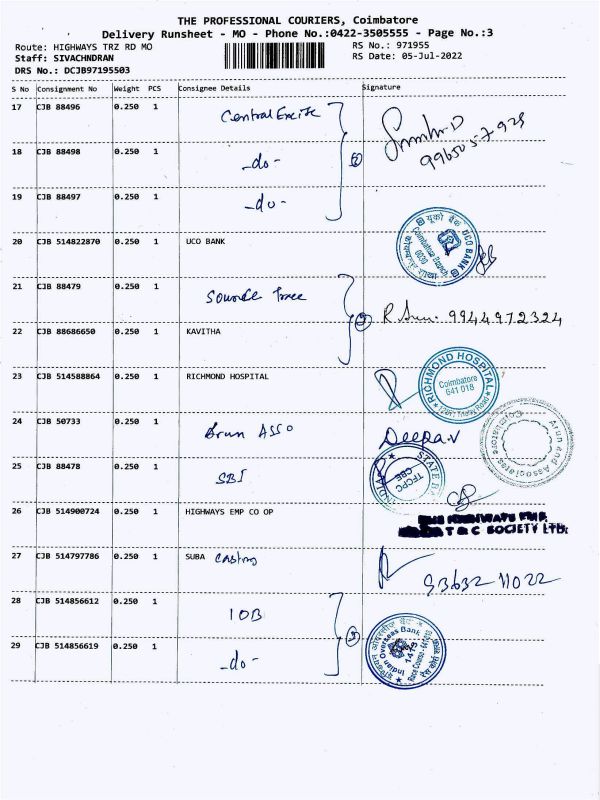 THE PROFESSIONAL COURIERS, Coimbatore
Delivery Runsheet - MO - Phone No.:0422-3505555 - Page No.:3
Route: HIGHWAYS TRZ RD MO
Staff: SIVACHNDRAN
DRS No.: DCJB97195503
RS No.: 971955
RS Date: 05-Jul-2022
S No Consignment No Weight PCS Consignee Details Signature
17 CJB 88496 0.250 1 Central Excise
18 CJB 88498 0.250 1 -do- ③
19 CJB 88497 0.250 1 -do-
20 CJB 514822870 0.250 1 UCO BANK
यूको बैंक UCO BANK
Coimbatore Branch
0020
21 CJB 88479 0.250 1 Source Tree
② 9944972324
22 CJB 88686650 0.250 1 KAVITHA
23 CJB 514588864 0.250 1 RICHMOND HOSPITAL
RICHMOND HOSPITAL
Coimbatore
641 018
24 CJB 50733 0.250 1 Arun ASSO Deepa.V
Arun and Associates
Coimbatore
25 CJB 88478 0.250 1 SBI
STATE BA
INDIA
TFCPC
CBE
26 CJB 514900724 0.250 1 HIGHWAYS EMP CO OP
T & C SOCIETY LTD.
27 CJB 514797786 0.250 1 SUBA Casting
93632 11022
28 CJB 514856612 0.250 1 IOB
②
29 CJB 514856619 0.250 1 -do-
Indian Overseas Bank
1415
Race Course